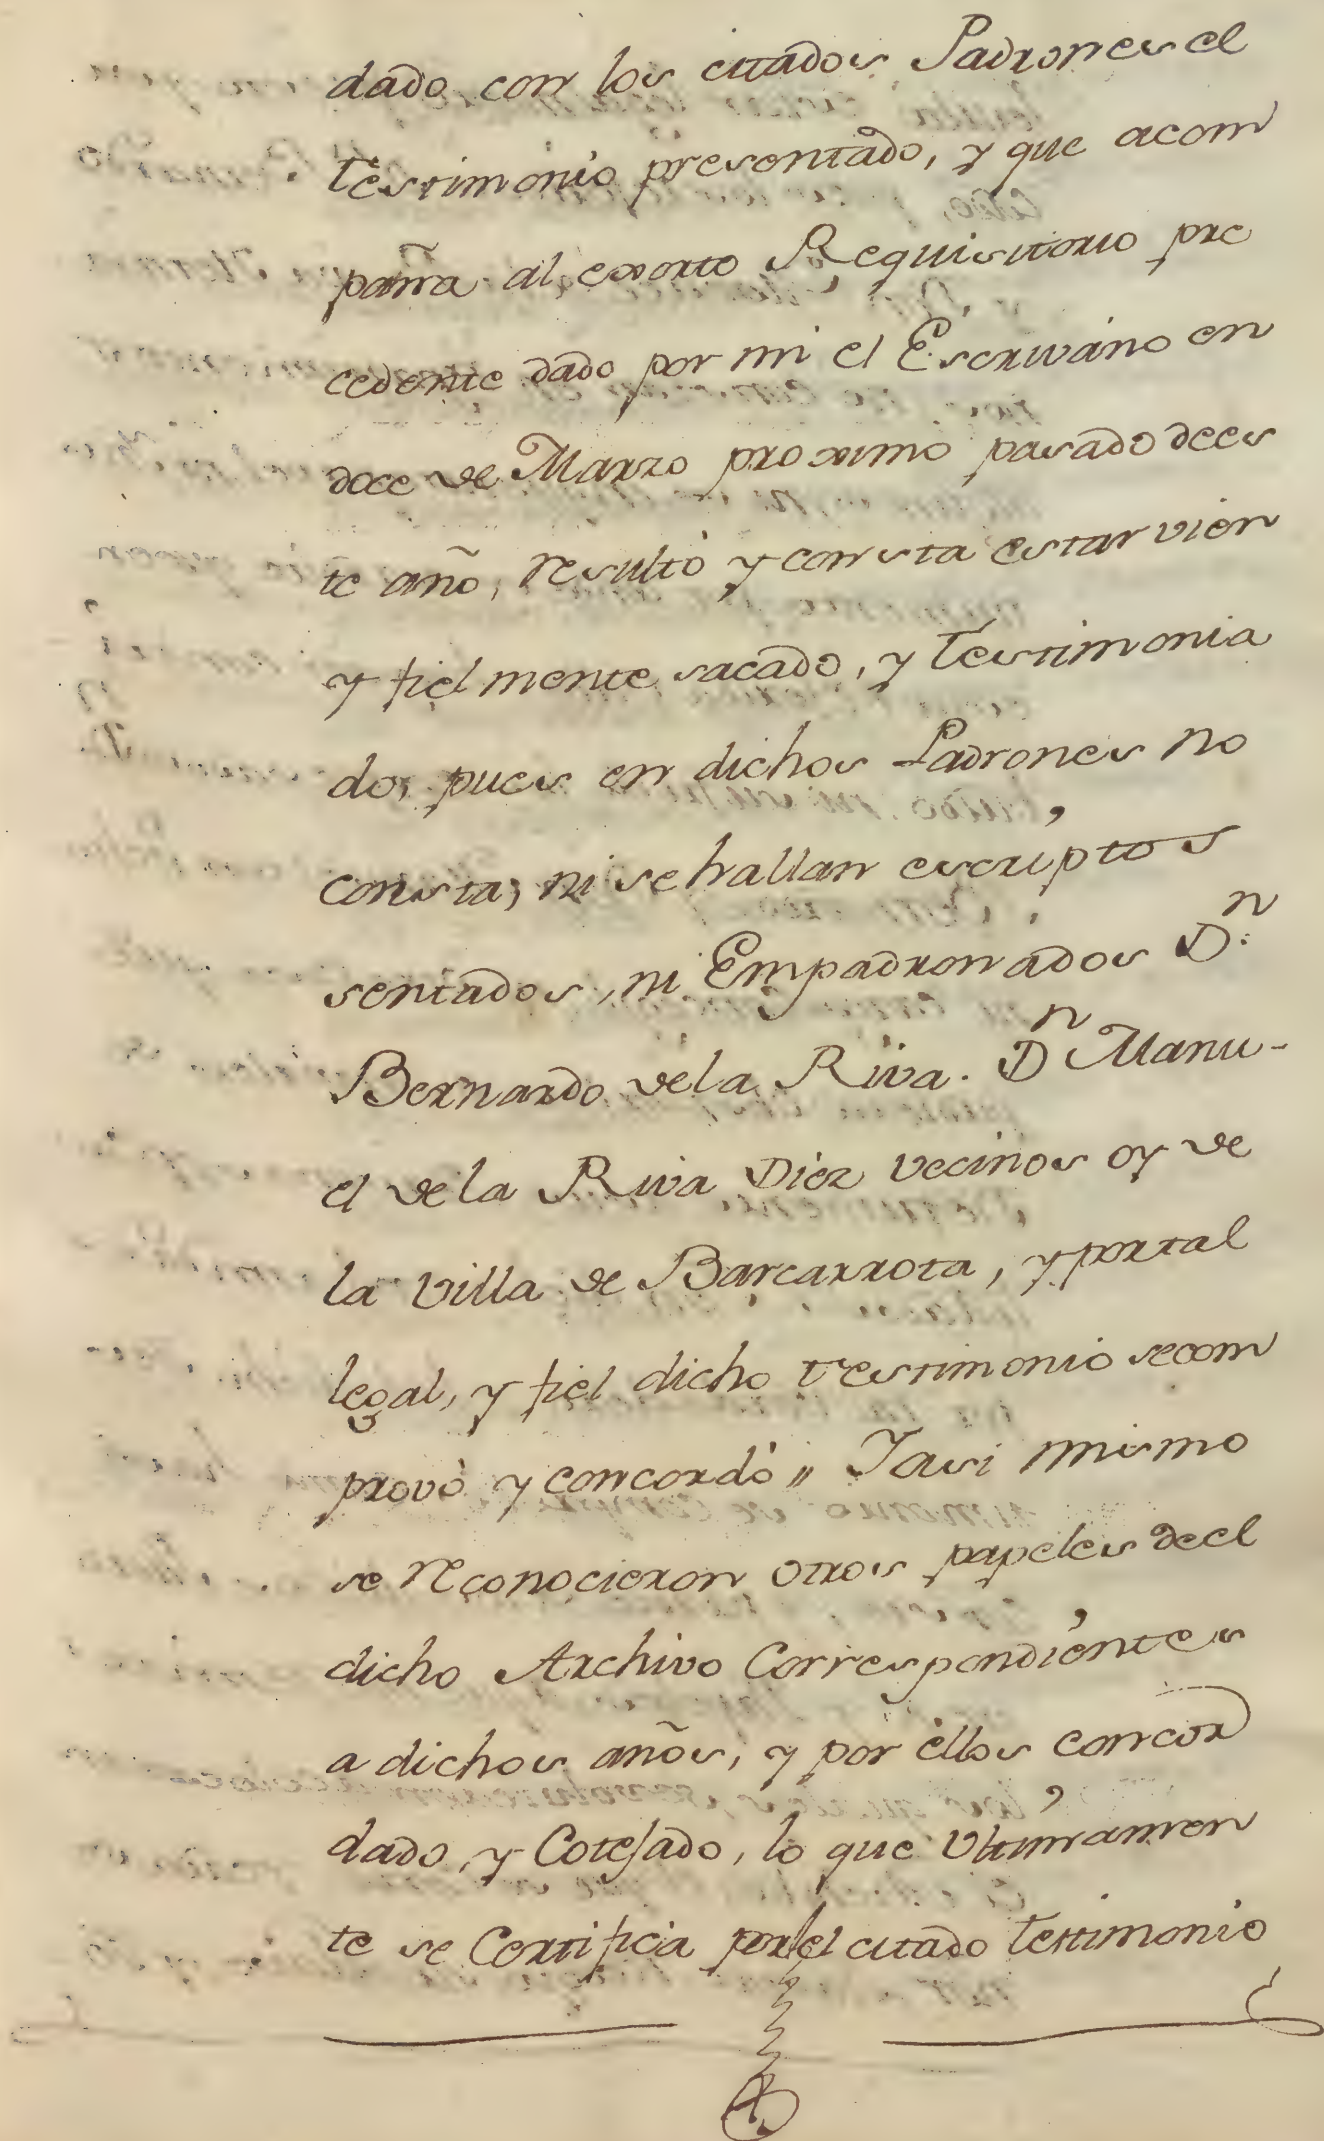 dado con los citados Padrones el
testimonio presentado, y que acom
paña al exorto Requisitorio pre
cedente dado por mi el Escrivano en
doce de Marzo proximo pasado dees
te año, resultó y consta estar vien
y fielmente sacado, y testimonia
do, pues en dichos Padrones no
consta, ni se hallan escriptos
sentados, ni Empadronados Dn.
Bernardo dela Riva. Dn Manu-
el de la Riva Diez vecinos oy de
la villa de Barcarrota, y portal
legal, y fiel dicho testimonio secom
provó y concordó " Iasi mismo
se reconocieron otros papeles deel
dicho Archivo Correspondientes
a dichos años, y por ellos concor
dado, y Cotejado, lo que Ultimamen
te se Certifica por el citado testimonio